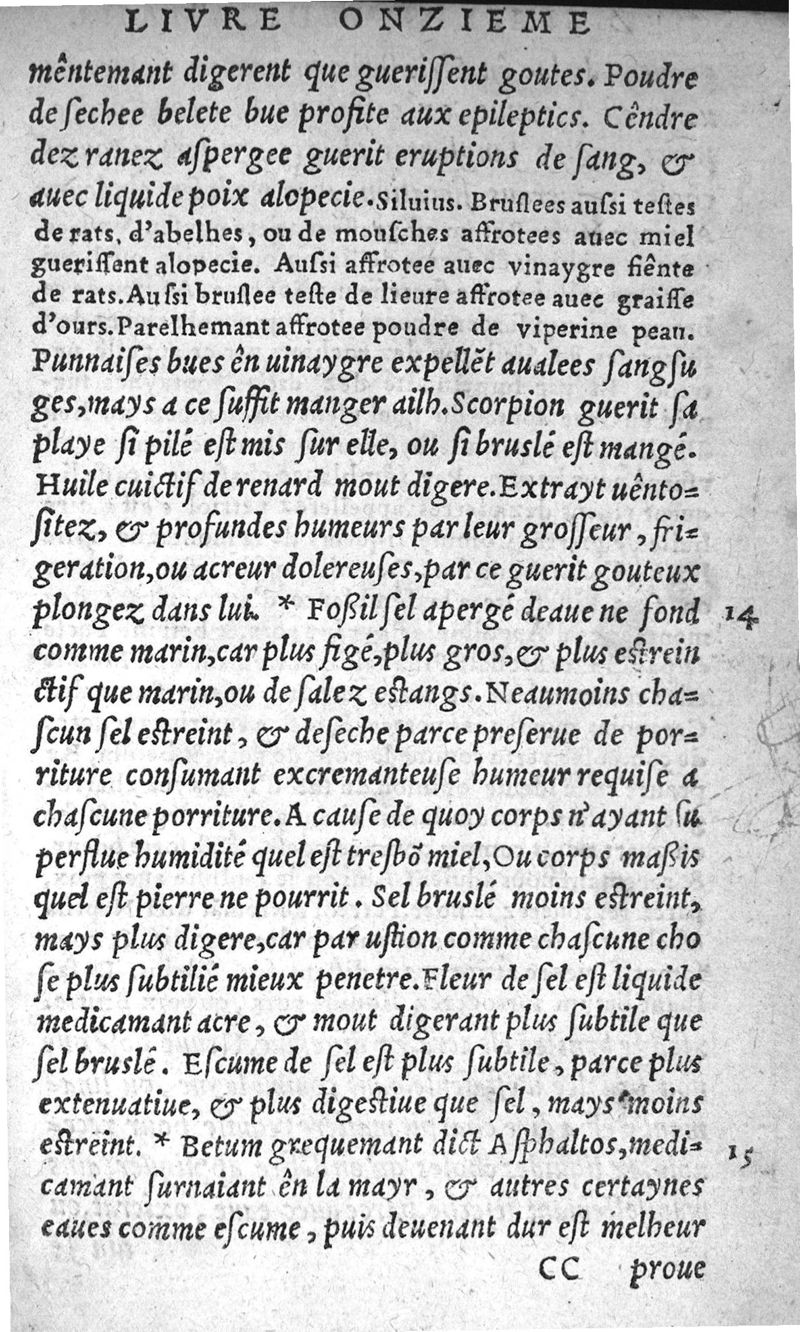 LIVRE ONZIEME
mêntemant digerent que gueriſſent goutes. Poudre
de ſechee belete bue profite aux epileptics. Cêndre
dez ranez aſpergee guerit eruptions de ſang, &
auec liquide poix alopecie. Siluius. Bruſlees auſsi teſtes
de rats, d'abelhes, ou de mouſches affrotees auec miel
gueriſſent alopecie. Auſsi affrotee auec vinaygre fiênte
de rats. Auſsi bruſlee teſte de lieure affrotee auec graiſſe
d'ours. Parelhemant affrotee poudre de viperine peau.
Punnaiſes bues ên uinaygre expellẽt aualees ſangſu
ges, mays a ce ſuffit manger ailh. Scorpion guerit ſa
playe ſi pilé eſt mis ſur elle, ou ſi bruslé eſt mangé.
Huile cuictif de renard mout digere. Extrayt uênto=
ſitez, & profundes humeurs par leur groſſeur, fri=
geration, ou acreur dolereuſes, par ce guerit gouteux
plongez dans lui. * Foßil ſel apergé deaue ne fond 14
comme marin, car plus figé, plus gros, & plus eſtrein
ctif que marin, ou de ſalez eſtangs. Neaumoins cha=
ſcun ſel eſtreint, & deſeche parce preſerue de por=
riture conſumant excremanteuſe humeur requiſe a
chaſcune porriture. A cauſe de quoy corps n'ayant ſu
perflue humidité quel eſt tresbõ miel, Ou corps maßis
quel eſt pierre ne pourrit. Sel bruslé moins eſtreint,
mays plus digere, car par uſtion comme chaſcune cho
ſe plus ſubtilié mieux penetre. Fleur de ſel eſt liquide
medicamant acre, & mout digerant plus ſubtile que
ſel bruslé. Eſcume de ſel eſt plus ſubtile, parce plus
extenuatiue, & plus digeſtiue que ſel, mays moins
eſtreint. * Betum grequemant dict Aſphaltos, medi= 15
camant ſurnaiant ên la mayr, & autres certaynes
eaues comme eſcume, puis deuenant dur eſt melheur
CC proue